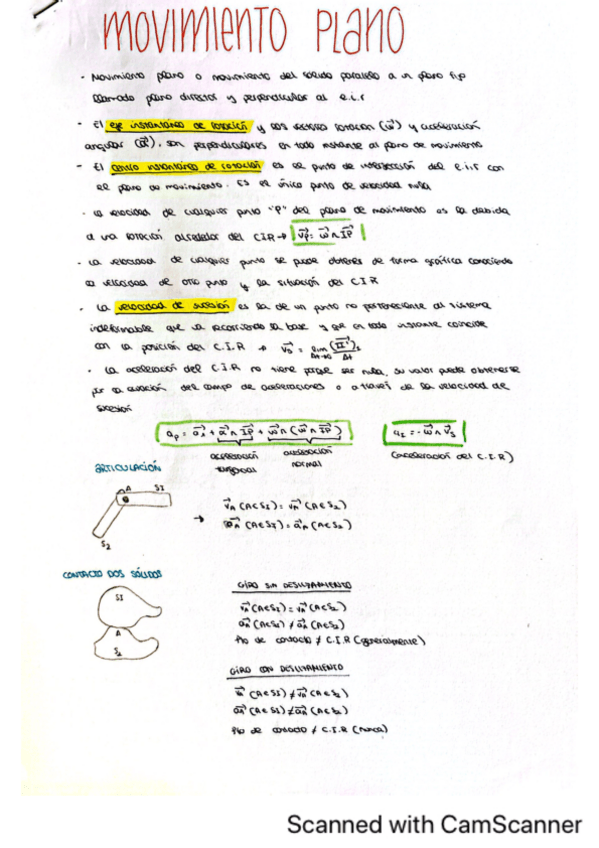 MOVIMIENTO PLANO
· Movimiento plano o movimiento del sólido paralelo a un plano fijo
llamado plano director y perpendicular al e.i.r
· El eje instantáneo de rotación y los vectores rotacion (ω⃗) y aceleración
angular (α⃗), son perpendiculares en todo instante al plano de movimiento
- El centro instantáneo de rotación es el punto de intersección del e.i.r con
el plano de movimiento. Es el único punto de velocidad nula
· La velocidad de cualquier punto "P" del plano de movimiento es la debida
a una rotación alrededor del CIR → v⃗p = ω⃗ ∧ IP⃗
· La velocidad de cualquier punto se puede obtener de forma gráfica conociendo
la velocidad de otro punto y la situación del C.I.R
· La velocidad de sucesión es la de un punto no perteneciente al sistema
indeformable que va recorriendo la base y que en todo instante coincide
con la posición del C.I.R → v⃗s = lim Δt→0 (II'⃗)₁ / Δt
· La aceleración del C.I.R no tiene porque ser nula, su valor puede obtenerse
por la ecuación del campo de aceleraciones o a través de la velocidad de
sucesión
ap = a⃗A + α⃗ ∧ IP⃗ + ω⃗ ∧ (ω⃗ ∧ IP⃗) aI = -ω⃗ ∧ v⃗s
aceleración tangencial aceleración normal (aceleración del C.I.R)
ARTICULACIÓN
A S1
S2
→ v⃗A (A∈S1) = v⃗A (A∈S2)
a⃗A (A∈S1) = a⃗A (A∈S2)
CONTACTO DOS SÓLIDOS
S1
A
S2
GIRO SIN DESLIZAMIENTO
v⃗A (A∈S1) = v⃗A (A∈S2)
a⃗A (A∈S1) ≠ a⃗A (A∈S2)
Pto de contacto ≠ C.I.R (generalmente)
GIRO CON DESLIZAMIENTO
v⃗A (A∈S1) ≠ v⃗A (A∈S2)
a⃗A (A∈S1) ≠ a⃗A (A∈S2)
Pto de contacto ≠ C.I.R (nunca)
Scanned with CamScanner